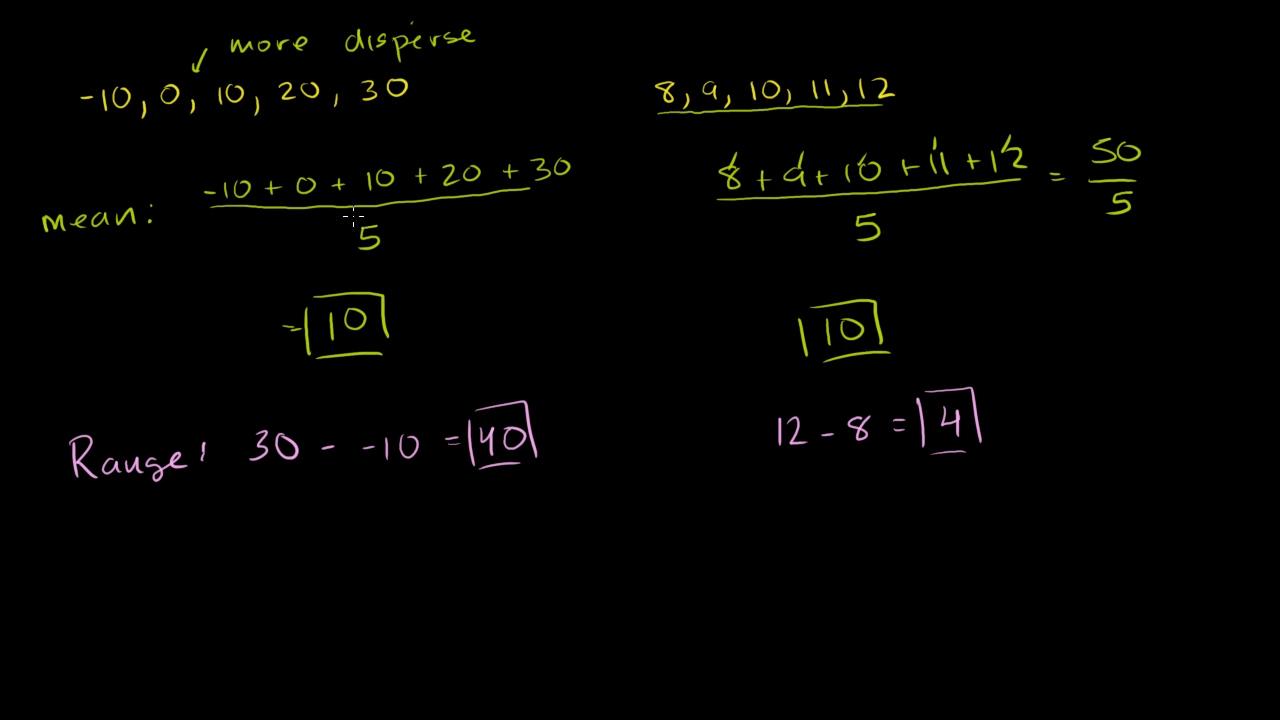 more disperse
-10, 0, 10, 20, 30
8, 9, 10, 11, 12
mean:
-10 + 0 + 10 + 20 + 30
5
= 10
8 + 9 + 10 + 11 + 12
5
= 50
5
10
Range: 30 - -10 = 40
12 - 8 = 4